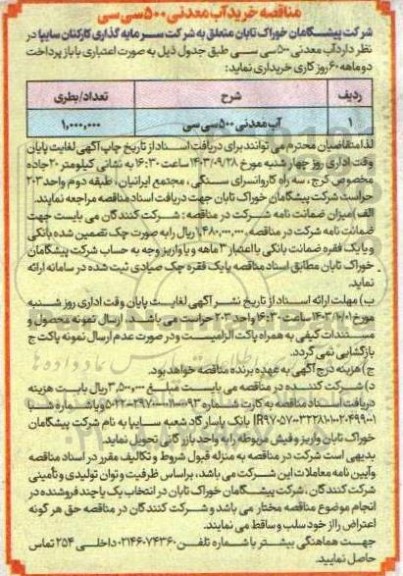 مناقصه خرید آب معدنی ۵۰۰ سی سی
شرکت پیشگامان خوراک تابان متعلق به شرکت سرمایه گذاری کارکنان سایپا در
نظر دارد آب معدنی ۵۰۰ سی سی طبق جدول ذیل به صورت اعتباری با باز پرداخت
دو ماهه ۶۰ روز کاری خریداری نماید:
ردیف شرح تعداد/بطری
۱ آب معدنی ۵۰۰ سی سی ۱,۰۰۰,۰۰۰
لذا متقاضیان محترم می توانند برای دریافت اسناد از تاریخ چاپ آگهی لغایت پایان
وقت اداری روز چهار شنبه مورخ ۱۴۰۳/۰۹/۲۸ ساعت ۱۶:۳۰ به نشانی کیلومتر ۲۰ جاده
مخصوص کرج، سه راه کاروانسرای سنگی، مجتمع ایرانیان، طبقه دوم واحد ۲۰۳
حراست شرکت پیشگامان خوراک تابان جهت دریافت اسناد مناقصه مراجعه نمایند.
الف) میزان ضمانت نامه شرکت در مناقصه: شرکت کنندگان می بایست جهت
ضمانت نامه شرکت در مناقصه، ۱,۴۸۰,۰۰۰,۰۰۰ ریال را به صورت چک تضمین شده بانکی
و یا یک فقره ضمانت بانکی با اعتبار ۳ ماهه و یا واریز وجه به حساب شرکت پیشگامان
خوراک تابان مطابق اسناد مناقصه یا یک فقره چک صیادی ثبت شده در سامانه ارائه
نماید.
ب) مهلت ارائه اسناد از تاریخ نشر آگهی لغایت پایان وقت اداری روز شنبه
مورخ ۱۴۰۳/۱۰/۰۱ ساعت ۱۶:۳۰ واحد ۲۰۳ حراست می باشد. ارسال نمونه محصول و
مستندات کیفی به همراه پاکت الزامیست و در صورت عدم ارسال نمونه پاکت ج
بازگشایی نمی گردد.
ج) هزینه درج آگهی به عهده برنده مناقصه خواهد بود.
د) شرکت کننده در مناقصه می بایست مبلغ ۳,۵۰۰,۰۰۰ ریال بابت هزینه
دریافت اسناد مناقصه به کارت شماره و یا شماره شبا
بانک پاسارگاد شعبه سایپا به نام شرکت پیشگامان
خوراک تابان واریز و فیش مربوطه را به واحد بازرگانی تحویل نماید.
بدیهی است شرکت در مناقصه به منزله قبول شروط و تکالیف مقرر در اسناد مناقصه
و آیین نامه معاملات این شرکت می باشد، براساس ظرفیت و توان تولیدی و تأمینی
شرکت کنندگان، شرکت پیشگامان خوراک تابان در انتخاب یک یا چند فروشنده در
انجام موضوع مناقصه مختار می باشد و شرکت کنندگان در مناقصه حق هر گونه
اعتراض را از خود سلب و ساقط می نمایند.
جهت هماهنگی بیشتر با شماره تلفن ۰۲۱۴۶۰۷۴۳۶۰ داخلی ۲۵۴ تماس
حاصل نمایید.